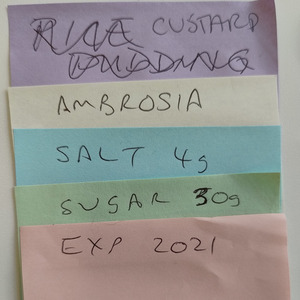 RICE CUSTARD
PUDDING
AMBROSIA
SALT 4g
SUGAR 30g
EXP 2021